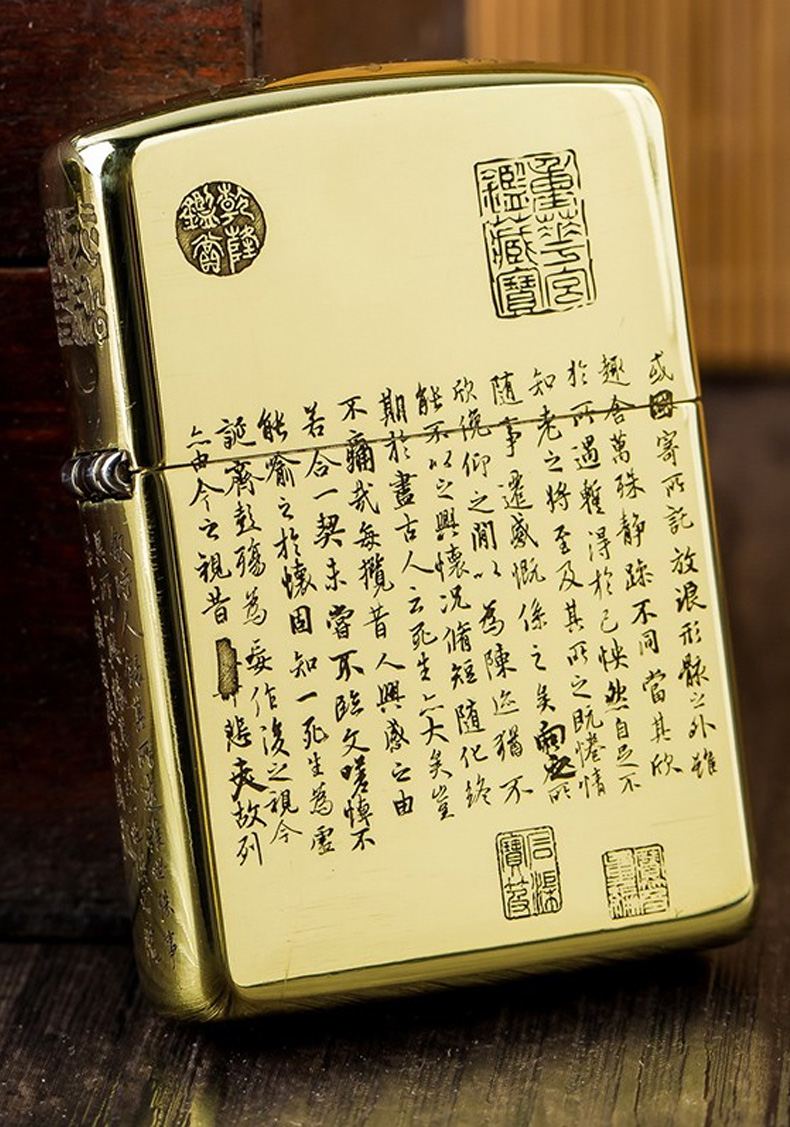 重華宮鑑藏寶
乾隆鑑賞
或因寄所託放浪形骸之外雖
趣舍萬殊静躁不同當其欣
於所遇暫得於己怏然自足不
知老之將至及其所之既惓情
随事遷感慨係之矣向之所
欣俛仰之閒以為陳迹猶不
能不以之興懷况脩短随化終
期於盡古人云死生亦大矣豈
不痛哉每攬昔人興感之由
若合一契未嘗不臨文嗟悼不
能喻之於懷固知一死生為虛
誕齊彭殤為妄作後之視今
亦由今之視昔悲夫故列
寶笈重編
石渠寶笈
時人錄其所述雖世殊事